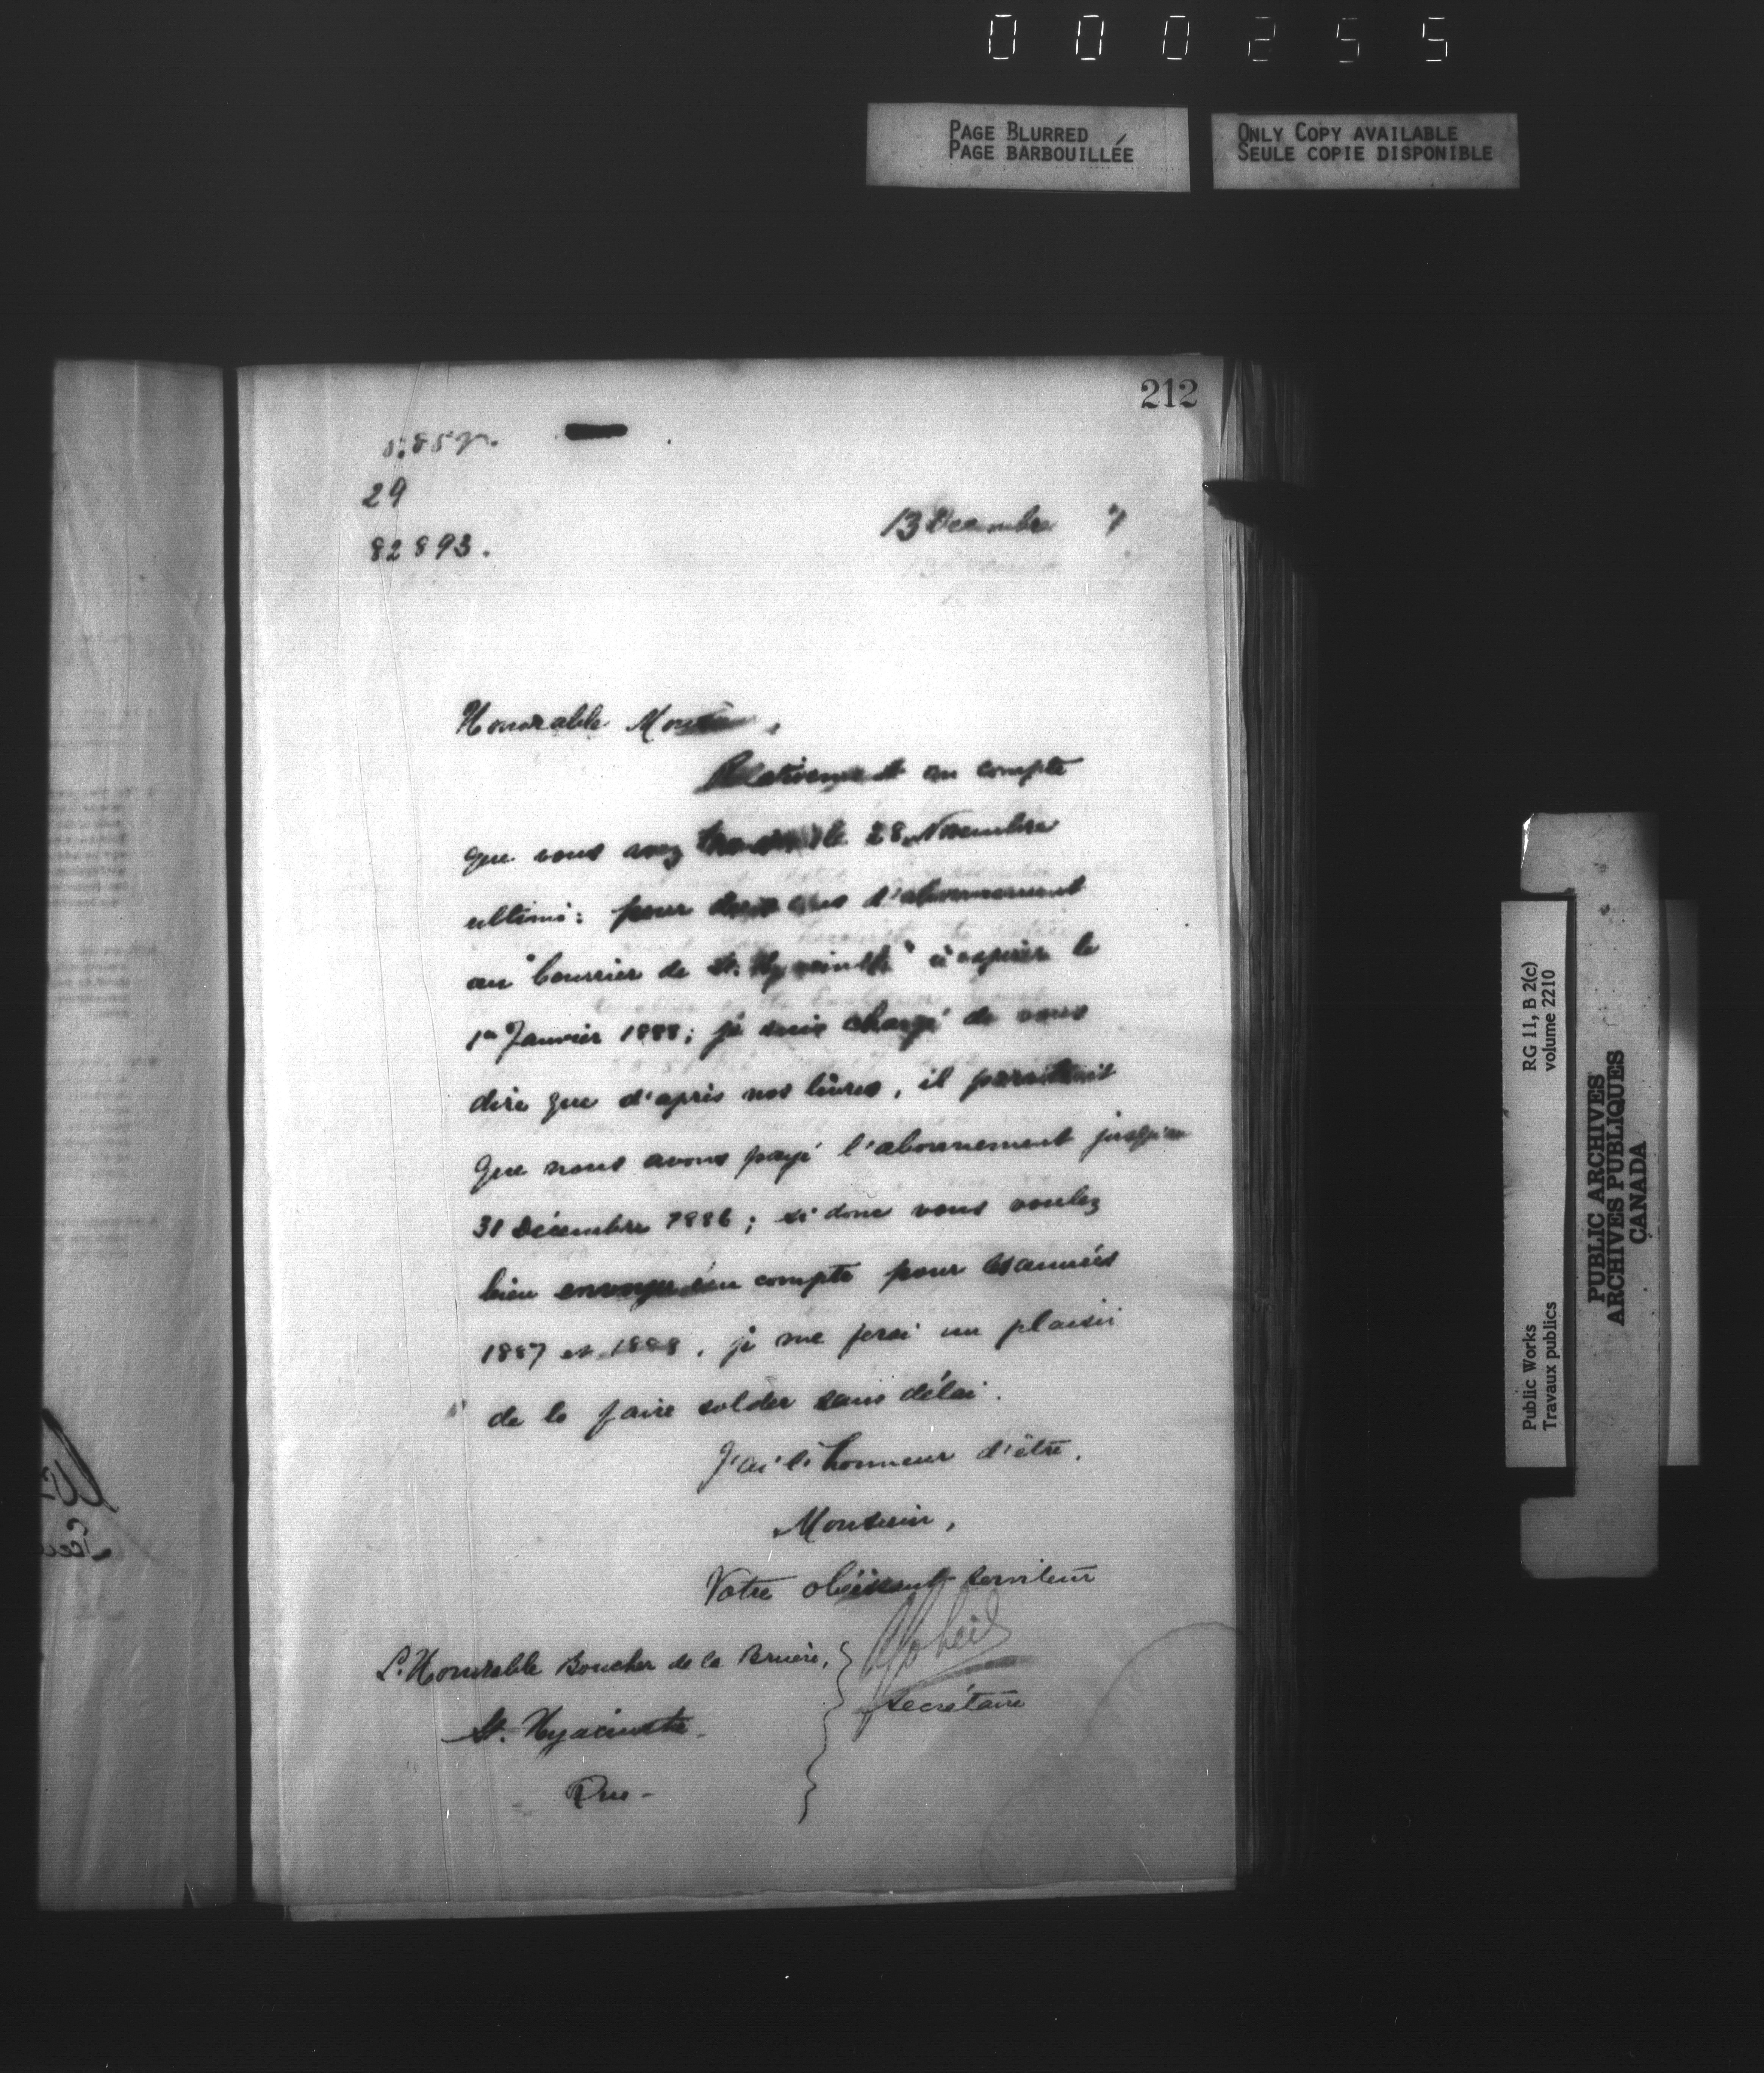 000255
PAGE BLURRED
PAGE BARBOUILLÉE
ONLY COPY AVAILABLE
SEULE COPIE DISPONIBLE
212
29
82893.
13 Decembre 7
Honorable Monsieur,
Relativement au compte
que vous avez le 28 Novembre
ultimo: pour ans d'abonnement
au "Courrier de St. Hyacinthe" à expirer le
1er Janvier 1888; je suis chargé de vous
dire que d'après nos livres, il paraîtrait
que nous avons payé l'abonnement jusqu'au
31 Décembre 1886; si donc vous voulez
bien envoyer un compte pour les années
1887 et 1888, je me ferai un plaisir
de le faire solder sans délai.
J'ai l'honneur d'être,
Monsieur,
Votre obéissant serviteur
Gobeil
Secrétaire
L'Honorable Boucher de la Bruère,
St. Hyacinthe
Que-
Public Works
Travaux publics
RG 11, B 2(c)
volume 2210
PUBLIC ARCHIVES
ARCHIVES PUBLIQUES
CANADA